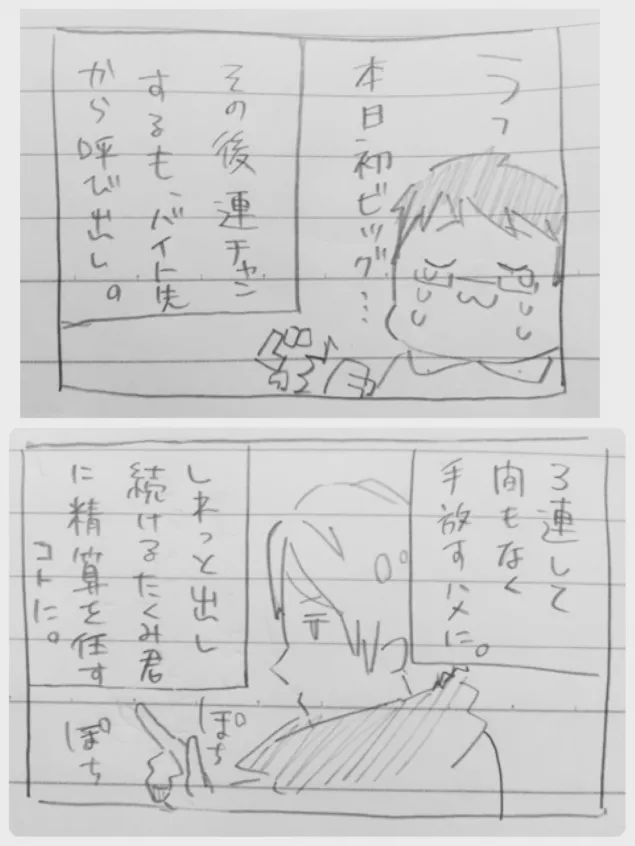 うつっ
本日初ビッグ…
その後連チャン
するも、バイト先
から呼び出し。
3連して
間もなく
手放すハメに。
しれっと出し
続けるたくみ君
に精算を任す
コトに。
ぽち
ぽち